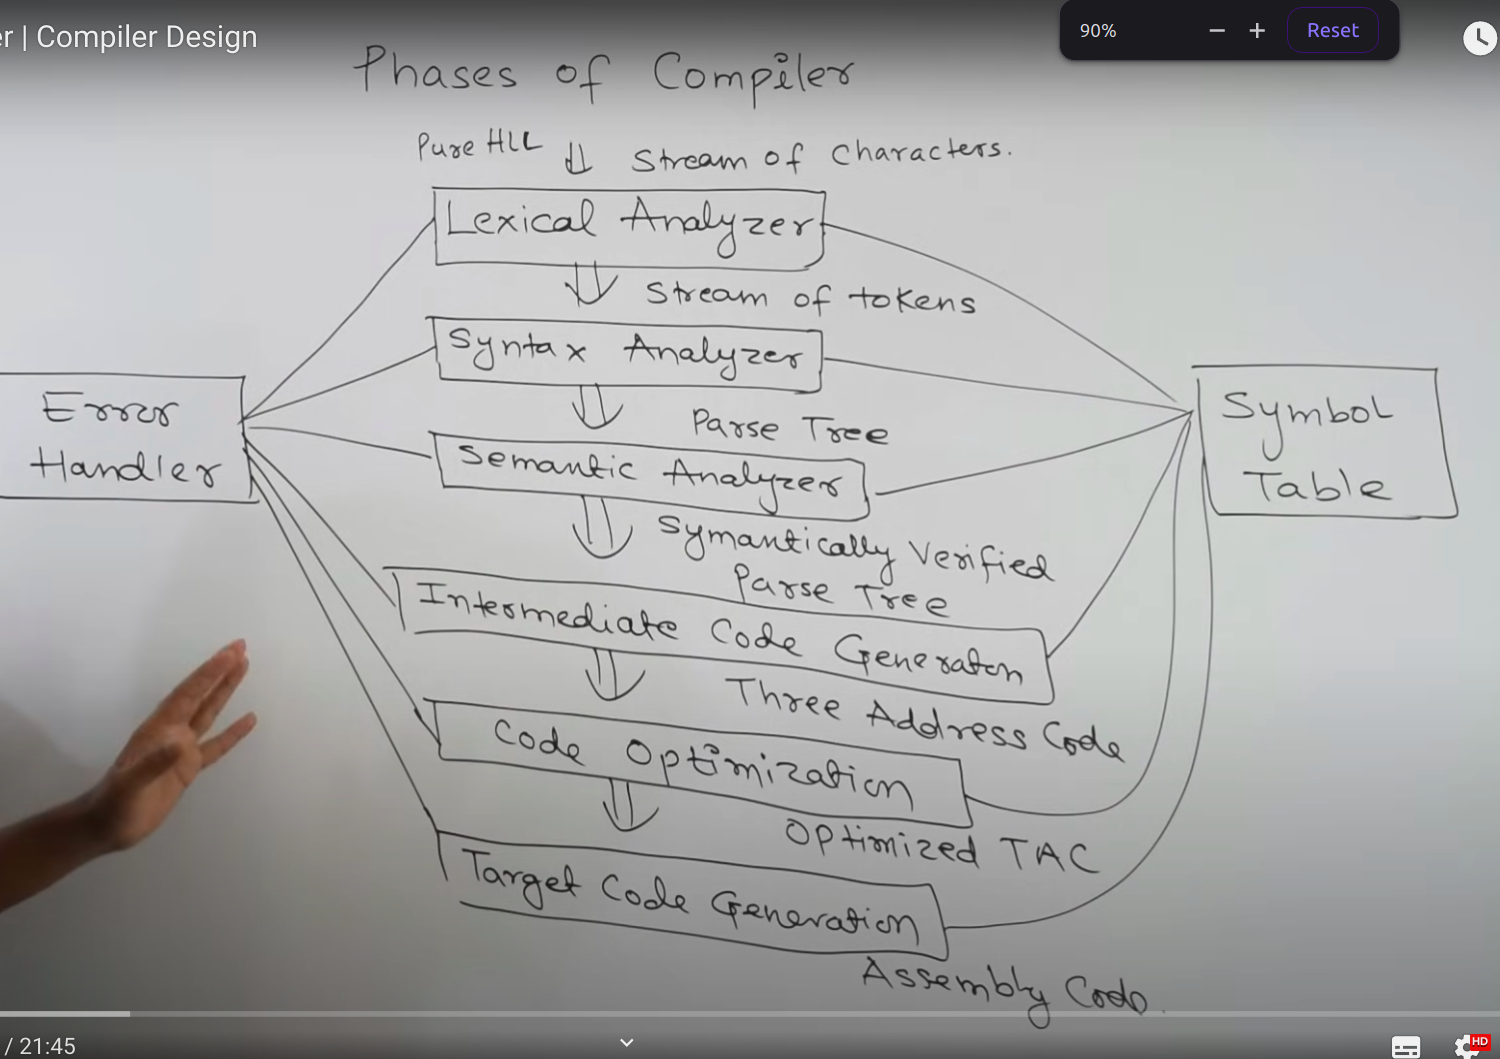 er | Compiler Design
90%
− + Reset
Phases of Compiler
Pure HLL Stream of Characters.
Lexical Analyzer
Stream of tokens
Syntax Analyzer
Parse Tree
Error
Handler
Symbol
Table
Semantic Analyzer
Symantically Verified
Parse Tree
Intermediate Code Generaton
Three Address Code
Code Optimization
Optimized TAC
Target Code Generation
Assembly Code.
/ 21:45
HD